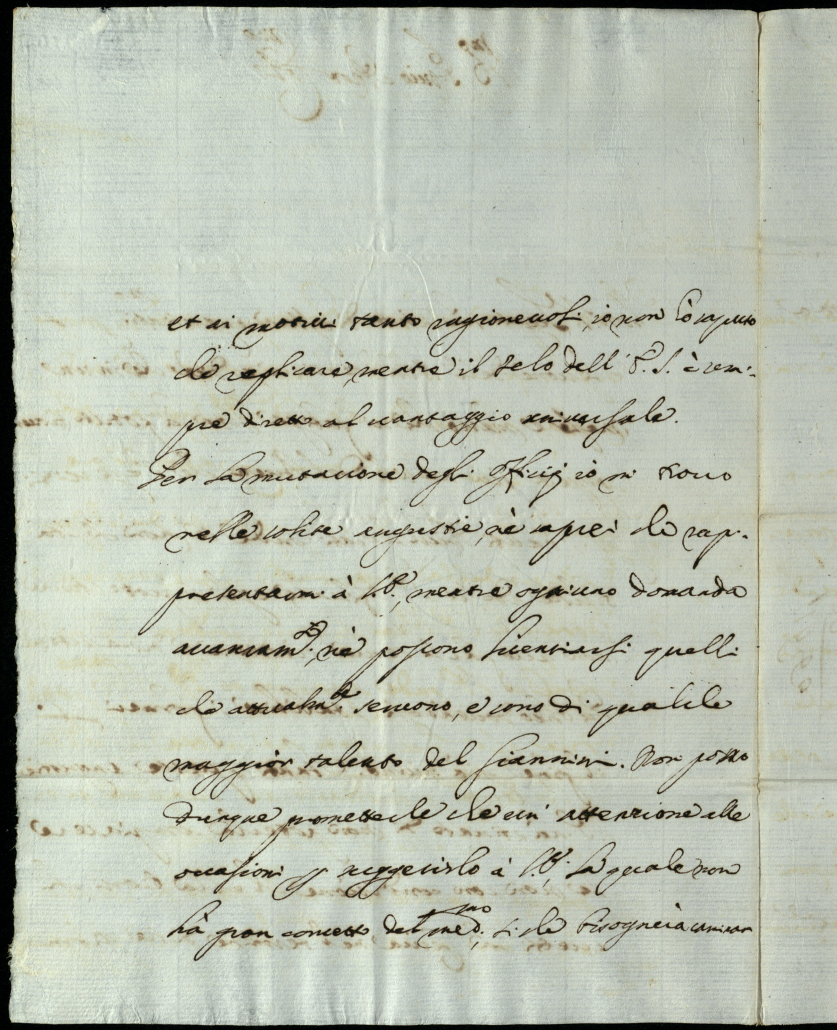 et ai motivi tanto ragionevoli, io non hò saputo
che replicare, mentre il zelo dell' E. S. è sem-
pre diretto al vantaggio universale.
Per la mutazione degli Offizij io mi trovo
nelle solite angustie, nè saprei che rap-
presentarmi à mentre ogniuno domanda
avanzam.to, nè possono licenziarsi quelli
che attualm.te servono, e sono di qualche
maggior talento del Giannini. Non posso
dunque prometterle che un' attenzione alle
occasioni p suggerirlo à la quale non
hà gran concetto del med.mo, si che bisognerà